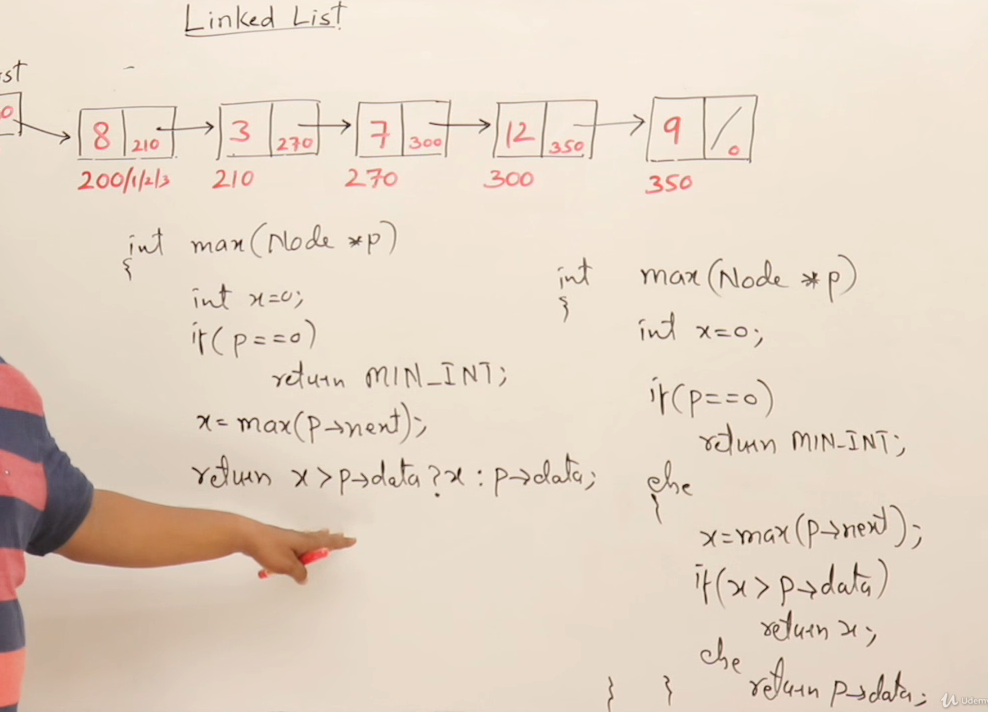 Linked List
st
0
8 210 3 270 7 300 12 350 9 0
200/1/2/3 210 270 300 350
int max(Node *p)
{
int x=0;
if(p==0)
return MIN_INT;
x=max(p→next);
return x>p→data?x:p→data;
int max(Node *p)
{
int x=0;
if(p==0)
return MIN_INT;
else
{
x=max(p→next);
if(x>p→data)
return x;
else
return p→data;
} }
Udemy